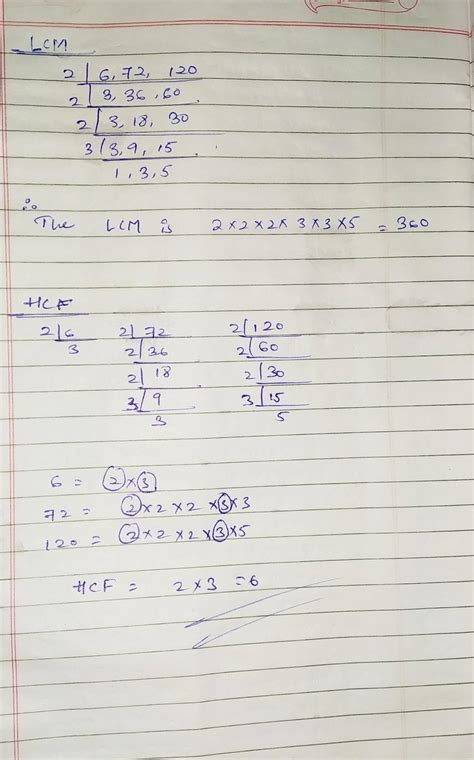 LCM
2 | 6, 72, 120
2 | 3, 36, 60
2 | 3, 18, 30
3 | 3, 9, 15
1, 3, 5
∴
The LCM is 2×2×2×3×3×5 = 360
HCF
2 | 6 2 | 72 2 | 120
3 2 | 36 2 | 60
2 | 18 2 | 30
3 | 9 3 | 15
3 5
6 = 2×3
72 = 2×2×2×3×3
120 = 2×2×2×3×5
HCF = 2×3 = 6